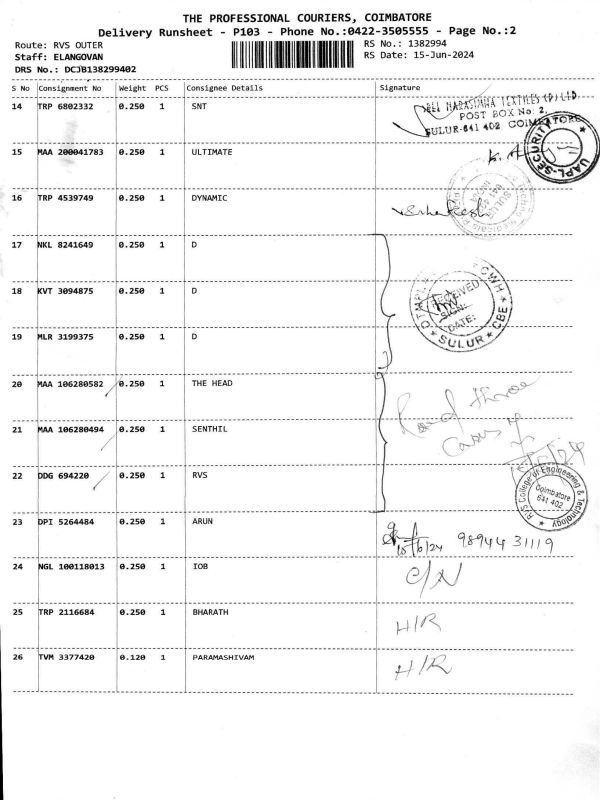 THE PROFESSIONAL COURIERS, COIMBATORE
Delivery Runsheet - P103 - Phone No.:0422-3505555 - Page No.:2
Route: RVS OUTER
RS No.: 1382994
Staff: ELANGOVAN
RS Date: 15-Jun-2024
DRS No.: DCJB138299402
S No Consignment No Weight PCS Consignee Details Signature
14 TRP 6802332 0.250 1 SNT
NARASIMHA TEXTILES (P) LTD
POST BOX No: 2,
SULUR-641 402 COIMBATORE
15 MAA 200041783 0.250 1 ULTIMATE
UAPL-SECURITY
16 TRP 4539749 0.250 1 DYNAMIC
SULUR
641 402
17 NKL 8241649 0.250 1 D
18 KVT 3094875 0.250 1 D
DTMPL CWH
RECEIVED
SIGN:
DATE:
SULUR CBE
19 MLR 3199375 0.250 1 D
20 MAA 106280582 0.250 1 THE HEAD
three
21 MAA 106280494 0.250 1 SENTHIL
22 DDG 694220 0.250 1 RVS
RVS College of Engineering & Technology
Coimbatore
641 402
23 DPI 5264484 0.250 1 ARUN
15/6/24 98944 31119
24 NGL 100118013 0.250 1 IOB
C/N
25 TRP 2116684 0.250 1 BHARATH
H/R
26 TVM 3377420 0.120 1 PARAMASHIVAM
H/R